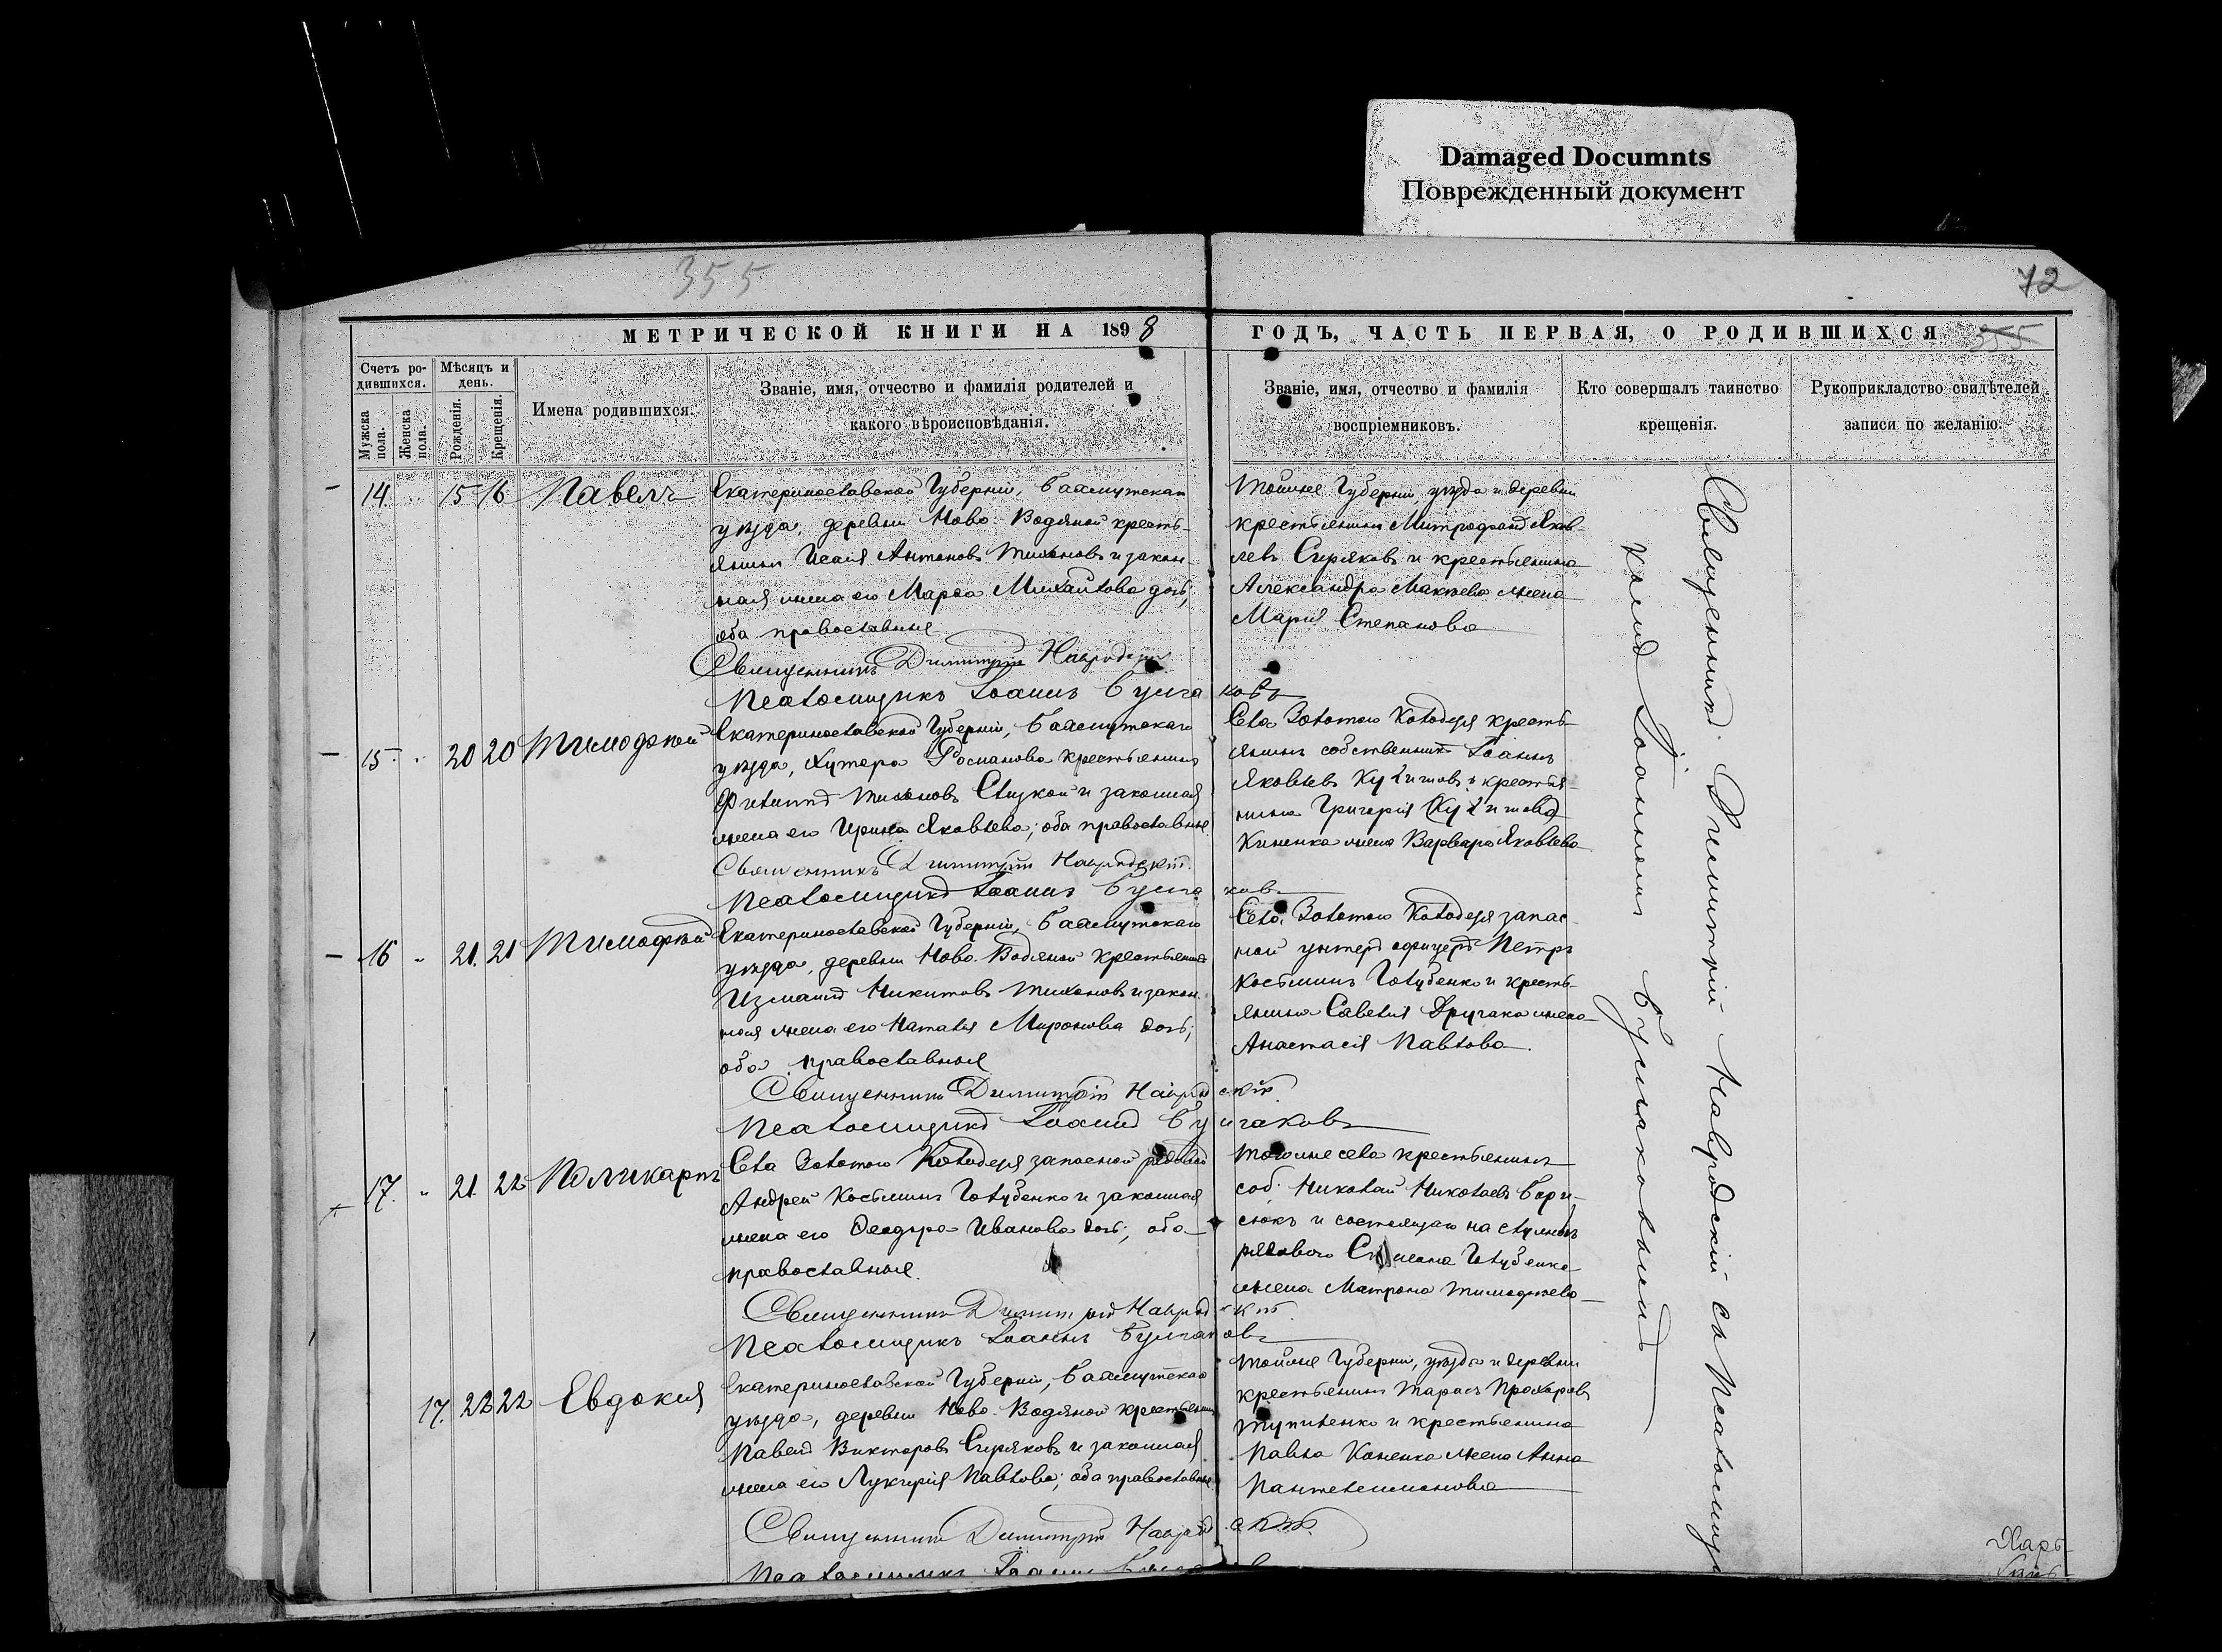 Damaged Documnts
Поврежденный документ
355
72
МЕТРИЧЕСКОЙ КНИГИ НА 1898
ГОДЪ, ЧАСТЬ ПЕРВАЯ, О РОДИВШИХСЯ
355
Счетъ ро-
дившихся.
Мужска
пола.
Женска
пола.
Мѣсяцъ и
день.
Рожденія.
Крещенія.
Имена родившихся.
Званіе, имя, отчество и фамилія родителей и
какого вѣроисповѣданія.
Званіе, имя, отчество и фамилія
воспріемниковъ.
Кто совершалъ таинство
крещенія.
Рукоприкладство свидѣтелей
записи по желанію.
14. 15 16 Павелъ
Екатеринославской Губерніи, Бахмутскаго
уѣзда, деревни Ново-Водяной кресть-
янинъ Исаія Антоновъ Тихоновъ и закон-
ная жена его Марѳа Михайлова дочь,
оба православные
Священникъ Димитрій Навродскій
Псаломщикъ Іоаннъ Булгаковъ
Тойже Губерніи, уѣзда и деревни
крестьянинъ Митрофанъ Яков-
левъ Сиряковъ и крестьянина
Александра Макѣева жена
Марія Степанова
15 20 20 Тимофѣй
Екатеринославской Губерніи, Бахмутскаго
уѣзда, Хутора Романова крестьянинъ
Филиппъ Тихоновъ и законная
жена его Ирина Яковлева; оба православные
Священникъ Димитрій Навродскій.
Псаломщикъ Іоаннъ Булгаковъ
Села Золотого Колодезя кресть-
янинъ собственникъ Іоаннъ
Яковлевъ и крестья-
нина Григорія
жена Варвара Яковлева
16 21. 21 Тимофѣй
Екатеринославской Губерніи, Бахмутскаго
уѣзда, деревни Ново-Водяной крестьянинъ
Измаилъ Никитовъ Тихоновъ и закон-
ная жена его Наталія Миронова дочь;
оба православные
Священникъ Димитрій Навродскій
Псаломщикъ Іоаннъ Булгаковъ
Села Золотого Колодезя запас-
ной унтеръ офицеръ Петръ
Косьминъ Голубенко и кресть-
янина Савелія жена
Анастасія Павлова
17. 21 22 Поликарпъ
Села Золотого Колодезя запасной рядовой
Андрей Косьминъ Голубенко и законная
жена его Ѳеодора Иванова дочь; оба
православные.
Священникъ Димитрій Навродскій
Псаломщикъ Іоаннъ Булгаковъ
Тогоже села крестьянинъ
соб. Николай Николаевъ Бори-
сюкъ и состоящаго на службѣ
рядового Голубенко
жена Матрона Тимофѣева
17. 22 22 Евдокія
Екатеринославской Губерніи, Бахмутскаго
уѣзда, деревни Ново-Водяной крестьянинъ
Павелъ Викторовъ Сиряковъ и законная
жена его Лукерія Павлова; оба православные
Священникъ Димитрій Навродскій
Псаломщикъ Іоаннъ Булгаковъ
Тойже Губерніи, уѣзда и деревни
крестьянинъ Тарасъ Прохоровъ
и крестьянина
Павла жена Анна
Пантелеимонова
Священникъ Димитрій Навродскій съ Псаломщи-
комъ Іоанномъ Булгаковымъ
Харь-